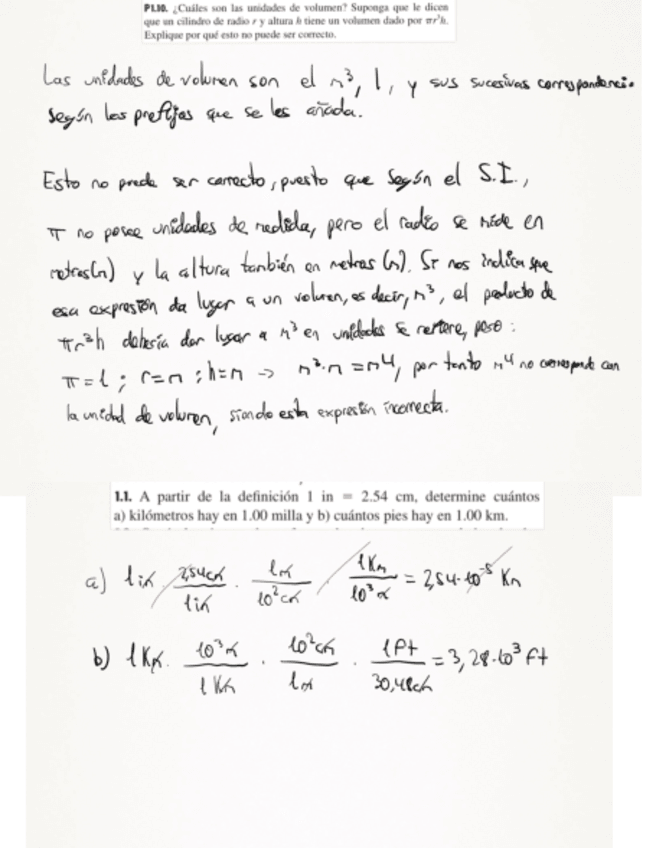 P1.10. ¿Cuáles son las unidades de volumen? Suponga que le dicen
que un cilindro de radio r y altura h tiene un volumen dado por πr³h.
Explique por qué esto no puede ser correcto.
Las unidades de volumen son el m³, l, y sus sucesivas correspondencias
según los prefijos que se les añada.
Esto no puede ser correcto, puesto que según el S.I.,
π no posee unidades de medida, pero el radio se mide en
metros(m) y la altura también en metros (m). Si nos indica que
esa expresión da lugar a un volumen, es decir, m³, el producto de
πr³h debería dar lugar a m³ en unidades se refiere, pero :
π = 1 ; r=m ; h=m → m³·m = m⁴, por tanto m⁴ no corresponde con
la unidad de volumen, siendo esta expresión incorrecta.
1.1. A partir de la definición 1 in = 2.54 cm, determine cuántos
a) kilómetros hay en 1.00 milla y b) cuántos pies hay en 1.00 km.
a) 1 in · 2,54cm/1in · 1m/10²cm · 1Km/10³m = 2,54·10⁻⁵ Km
b) 1 Km · 10³m/1Km · 10²cm/1m · 1ft/30,48cm = 3,28·10³ ft